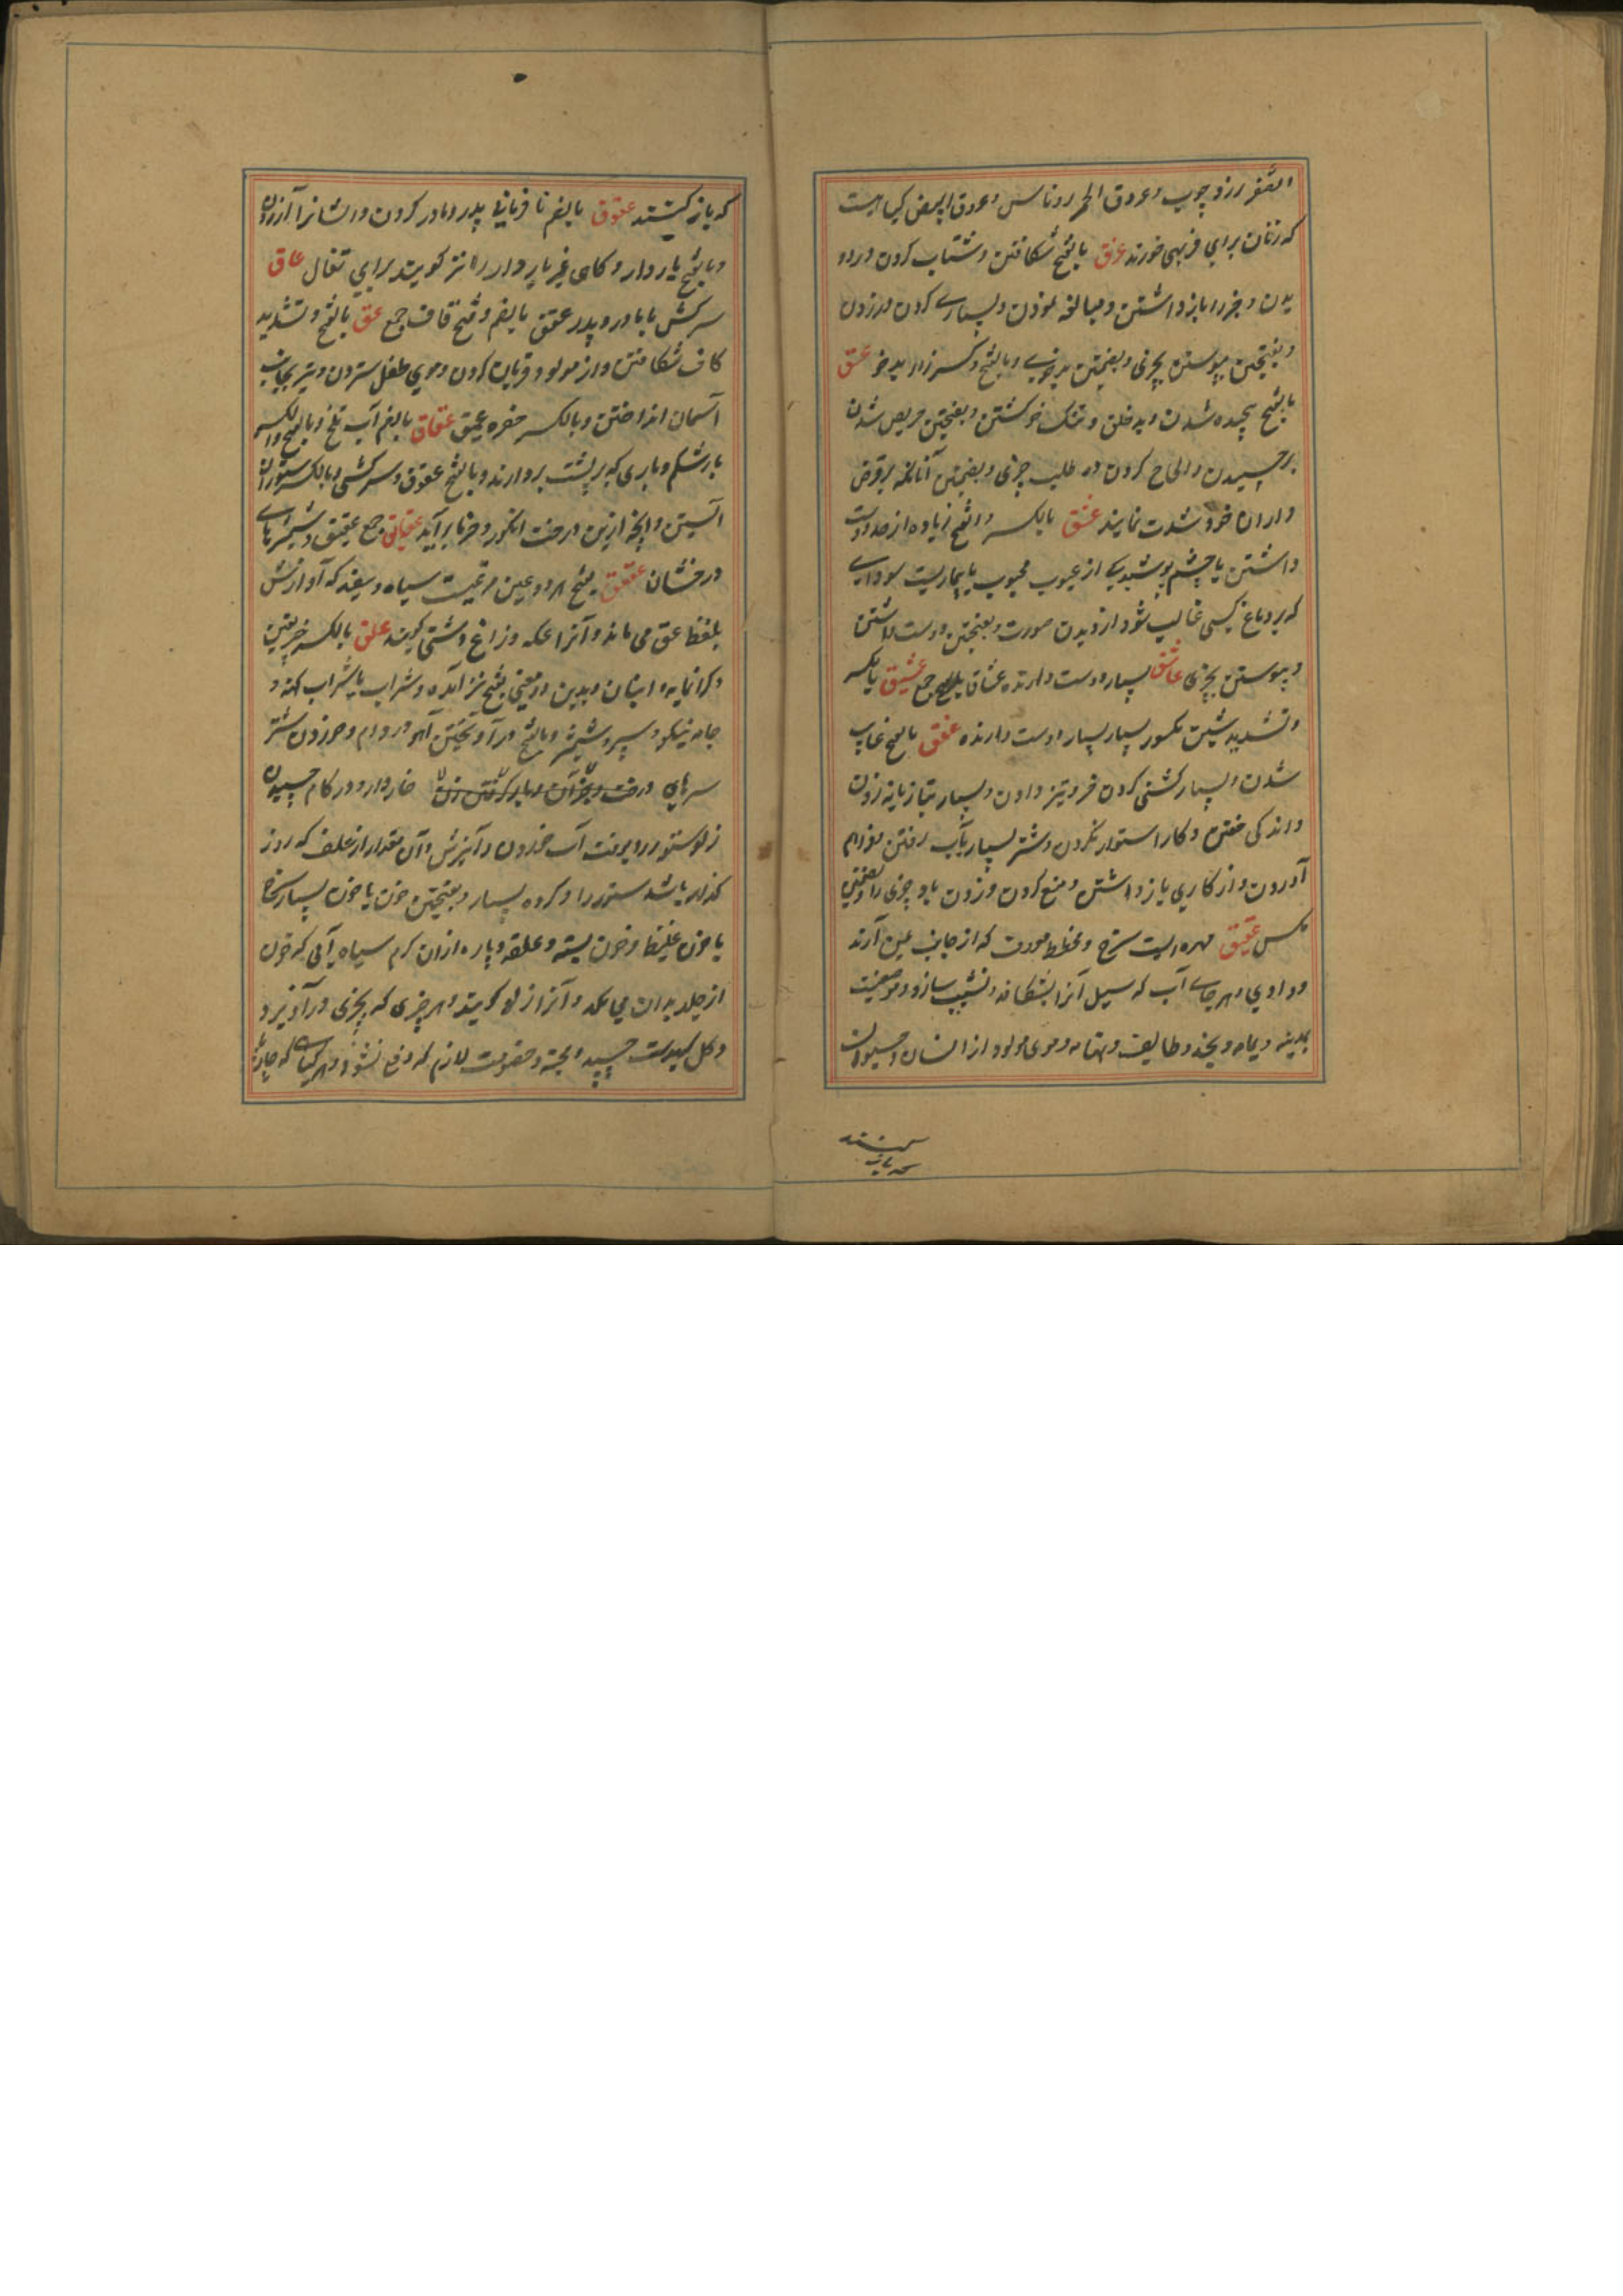 الصفر زرد چوب و عروق الحمر روناس و عروق ابیض گیاهیست
که زنان برای فربهی خورند عزق بالفتح شکافتن و شتاب کردن در دو
یدن و خبر را باز داشتن و مبالغه نمودن و بسیاری کردن در زدن
و بفتحتین پیوستن بچیزی و بضمتین بدخوی و بالفتح و کسر زا بدخو عسق
بالفتح پیچیده شدن و بدخلق و تنک خو کشتن و بفتحتین حریص شدن
برچسپیدن و الحاح کردن در طلب چیزی و بضمتین آنانکه بر قرض
داران خود شدت نمایند عشق بالکسر و الفتح زیاده از حد دوست
داشتن یا چشم پوشیدنی از عیوب محبوب یا بیماریست سودایی
که بر دماغ کسی غالب شود از دیدن صورت و بفتحتین دوست داشتن
و پیوستن بچیزی عاشق بسیار دوست دارنده عشاق جمع عشیق بالکسر
و تشدید شین مکسور بسیار بسیار دوست دارنده عفق بالفتح غایب
شدن و بسیار کشنی کردن خر و تیز دادن و بسیار بتازیانه زدن
و اندکی خفتن و کار استوار نکردن و شتر بسیار بآب رفتن فراهم
آوردن و از کاری باز داشتن و منع کردن و زدن باد چیزی را و بضمتین
عقیق مهره ایست سرخ و مخطط مدور که از جانب یمن آرند
و وادی و هر جای آب که سیل آنرا بشکافد و نشیب سازد و موضعیست
بمدینه و یمامه و بنجد و طایف و تهامه و موی مولود از انسان و حیوان
که باز کشتند عقوق بالضم نافرمانی پدر و مادر کردن و ایشانرا آزردن
و بالفتح باردار و کاهی غیر باردار را نیز کویند برای تفال عاق
سرکش با مادر و پدر عقق بالضم و فتح قاف جمع عق بالفتح و تشدید
کاف شکافتن و از مولود قربان کردن و موی طفل ستردن و تیر بجانب
آسمان انداختن و بالکسر حفره عمیق عقاق بالضم آب تلخ و بالفتح و الکسر
بار شکم و باری که بر پشت بردارند و بالفتح عقوق و سرکشی و بالکسر ستوران
آبستن و آنچه از بن درخت انکور و خرما برآید عقایق جمع عقیق و شمشیرهای
درخشان عقعق بفتح هر دو عین مرغیست سیاه و سفید که آوازش
بلفظ عق می ماند و آنرا عکه و زاغ دشتی کویند علق بالکسر خریقین
و کرانمایه و انبان و بدین معنی بفتح نیز آمده و شراب یا شراب کهنه و
جامه نیکو و سپر و شمشیر و بالفتح درآویختن آهو در دام و خوردن شتر
سرهای درخت خاردار و در کام چسپیدن
زلو ستور را بوقت آب خوردن و آمیزش و آن مقدار از علف که روز
کذار باشد ستور را و کروه بسیار و بفتحتین خون یا خون بسیار سخ
یا خون غلیظ و خون بسته و علقه و پاره ازان کرم سیاه آبی که خون
از جلد بدان می مکد و آنرا زلو کویند و هر چیزی که بچیزی درآویزد
و کل که بدست چسپد و خصومت لازم که دفع نشود و هر گیاهی که چارپا
کشتند
که باز